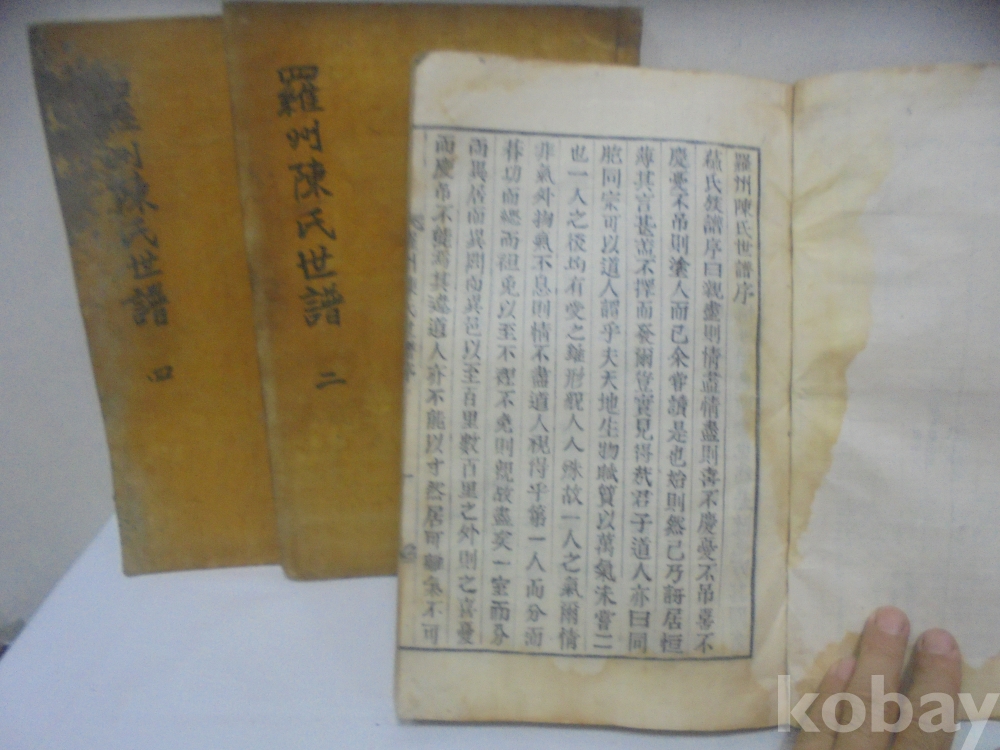 羅州陳氏世譜 四
羅州陳氏世譜 二
羅州陳氏世譜序
蘇氏族譜序曰親盡則情盡情盡則喜不慶憂不吊喜不
慶憂不吊則塗人而已余嘗讀是也始則然已乃蔣居恒
薄其言甚盖不擇而發爾豈實見得哉君子道人亦曰同
胞同宗可以道人謂乎夫天地生物賦質以萬氣未嘗二
也一人之後均有愛之雖形殊人人殊故一人之氣爾情
非氣外物氣不息則情不盡道人視得乎第一人而分而
朞功而緦而袒免以至不袒不免則親故盡矣一室而分
而異居而異閭而異邑以至百里數百里之外則之喜憂
而慶吊不能焉其遠道人亦不能以寸然居可 氣不可
kobay